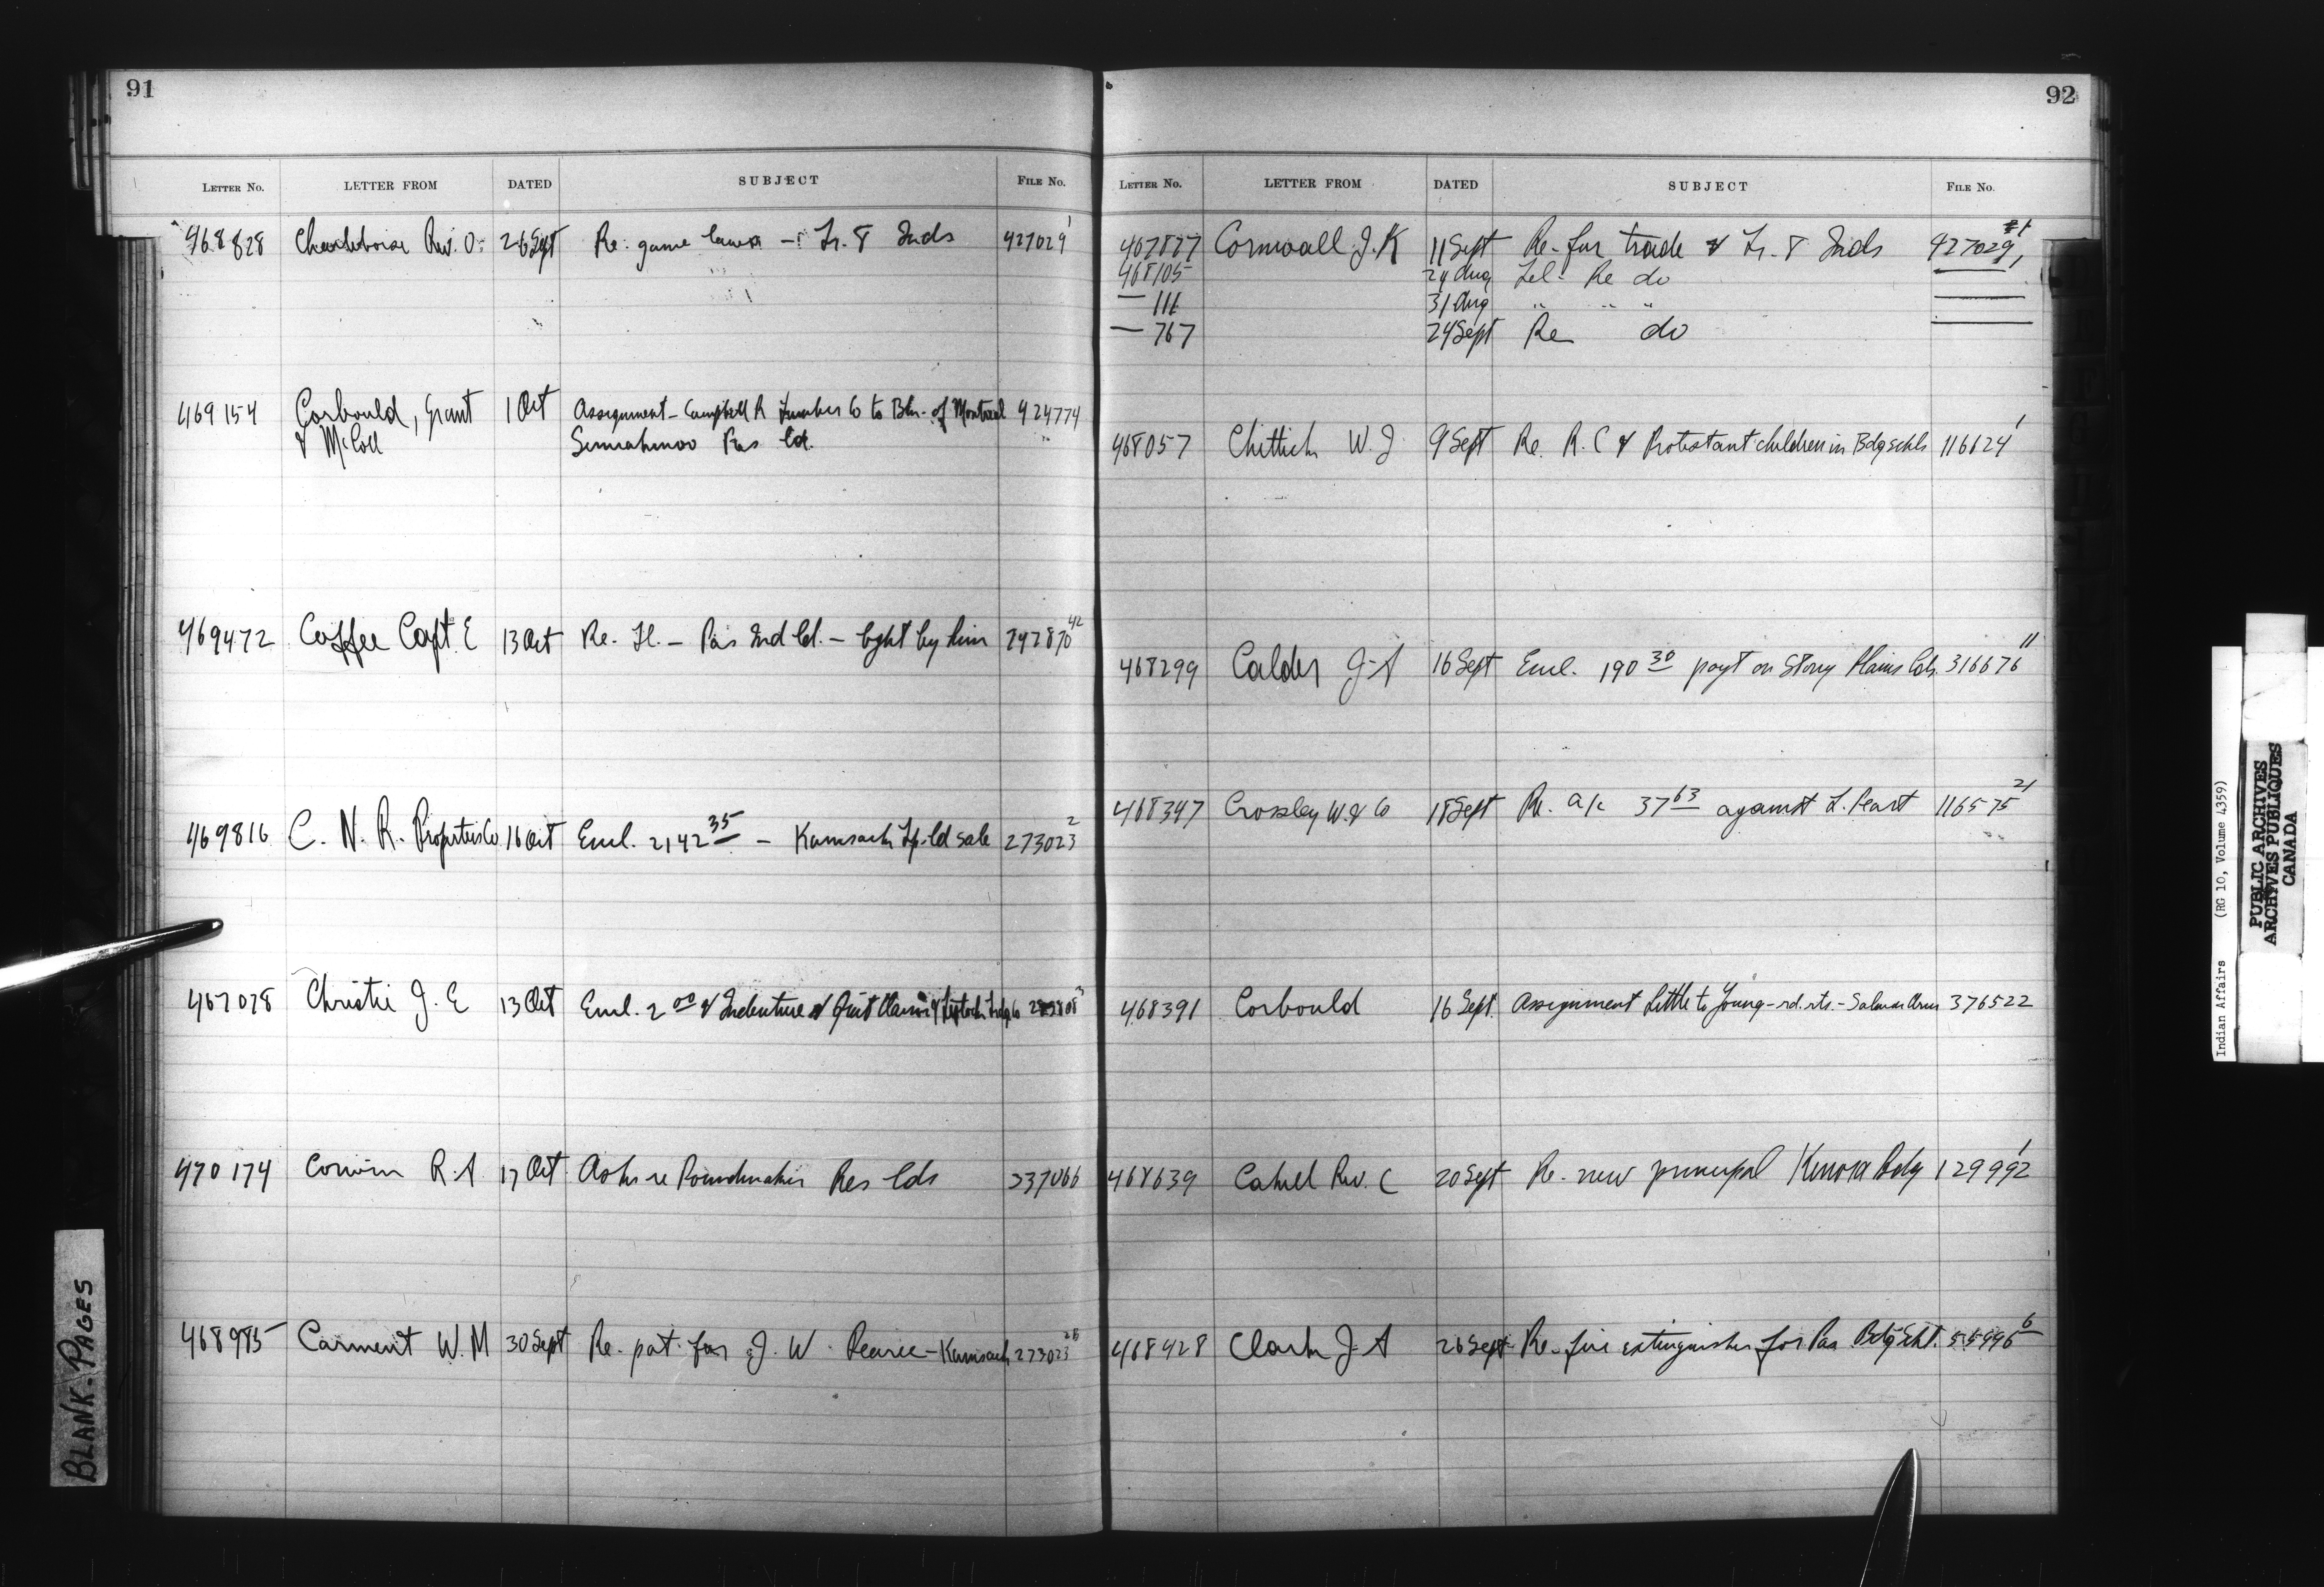 91
LETTER No. LETTER FROM DATED SUBJECT FILE No.
468828 Charlebois Rev. O. 26 Sept Re. game laws - Tr. 8 Inds 427029 1
469154 Corbould, Grant 1 Oct Assignment - Campbell R Lumber Co to Bk. of Montreal 424774
& McColl Semiahmoo Res ld.
469472 Coffee Capt E 13 Oct Re. - Pas Ind ld. - bght by him 42
C. N. R. Properties Co 16 Oct Encl. 2142 35 - Kamsack Tp. ld sale 273023 2
469816
467078 Christie J. E 13 Oct Encl. 2 00 & Indenture & Quit Claim
470174 Corwin R. A 17 Oct Asks re Poundmaker Res lds
468985 Carment W. M 30 Sept Re. pat. for J. W. Pearce - Kamsack 273023
92
LETTER No. LETTER FROM DATED SUBJECT FILE No.
467877 Cornwall J. K 11 Sept Re. fur trade & Tr. 8 Inds 427029 1
468105 29 Aug Tel - Re do
— 111 31 Aug " " "
— 767 24 Sept Re do
468057 Chittick W. J 9 Sept Re. R. C & Protestant children in Bdg schls 116624 1
468299 Calder J. A 16 Sept Encl. 190 30 payt on Stony Plains lds. 316676 11
468347 Crossley W. & Co 18 Sept Re. a/c 37 63 against L. Peart 116575 21
468391 Corbould 16 Sept. Assignment Little to Young - rd. rts. - Salmon Arm 376522
468639 Cahill Rev. C 20 Sept Re. new principal Kenora Bdg 129992 1
468428 Clark J. A 26 Sept Re. fire extinguisher for Pas Bdg Schl. 55996 6
BLANK-PAGES
Indian Affairs (RG 10, Volume 4359)
PUBLIC ARCHIVES
ARCHIVES PUBLIQUES
CANADA